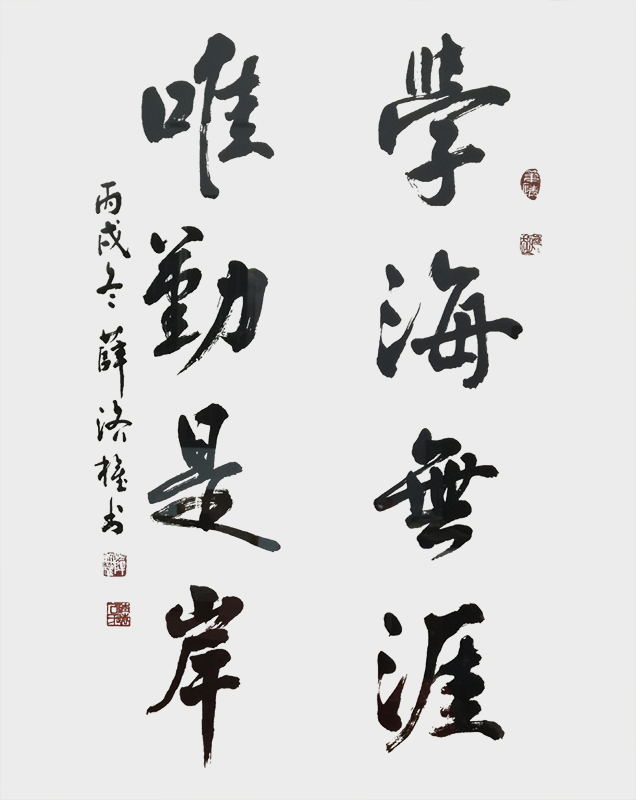 學海無涯
唯勤是岸
丙戌冬薛洛權书